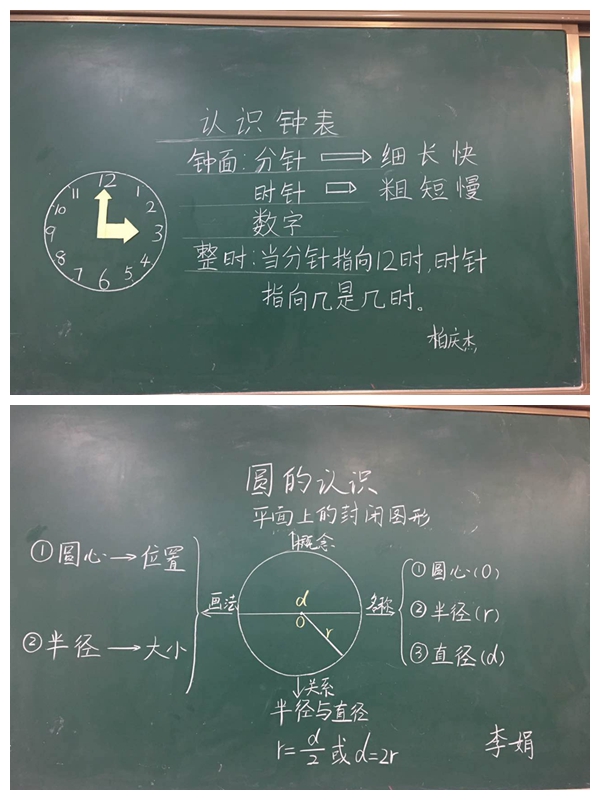 认识钟表
钟面:分针 细长快
时针 粗短慢
数字
整时:当分针指向12时,时针
指向几是几时。
12
1
2
3
4
5
6
7
8
9
10
11
柏庆杰
圆的认识
平面上的封闭图形
概念
①圆心→位置
②半径→大小
画法
d
O
r
名称
①圆心(O)
②半径(r)
③直径(d)
关系
半径与直径
r=d/2或d=2r
李娟